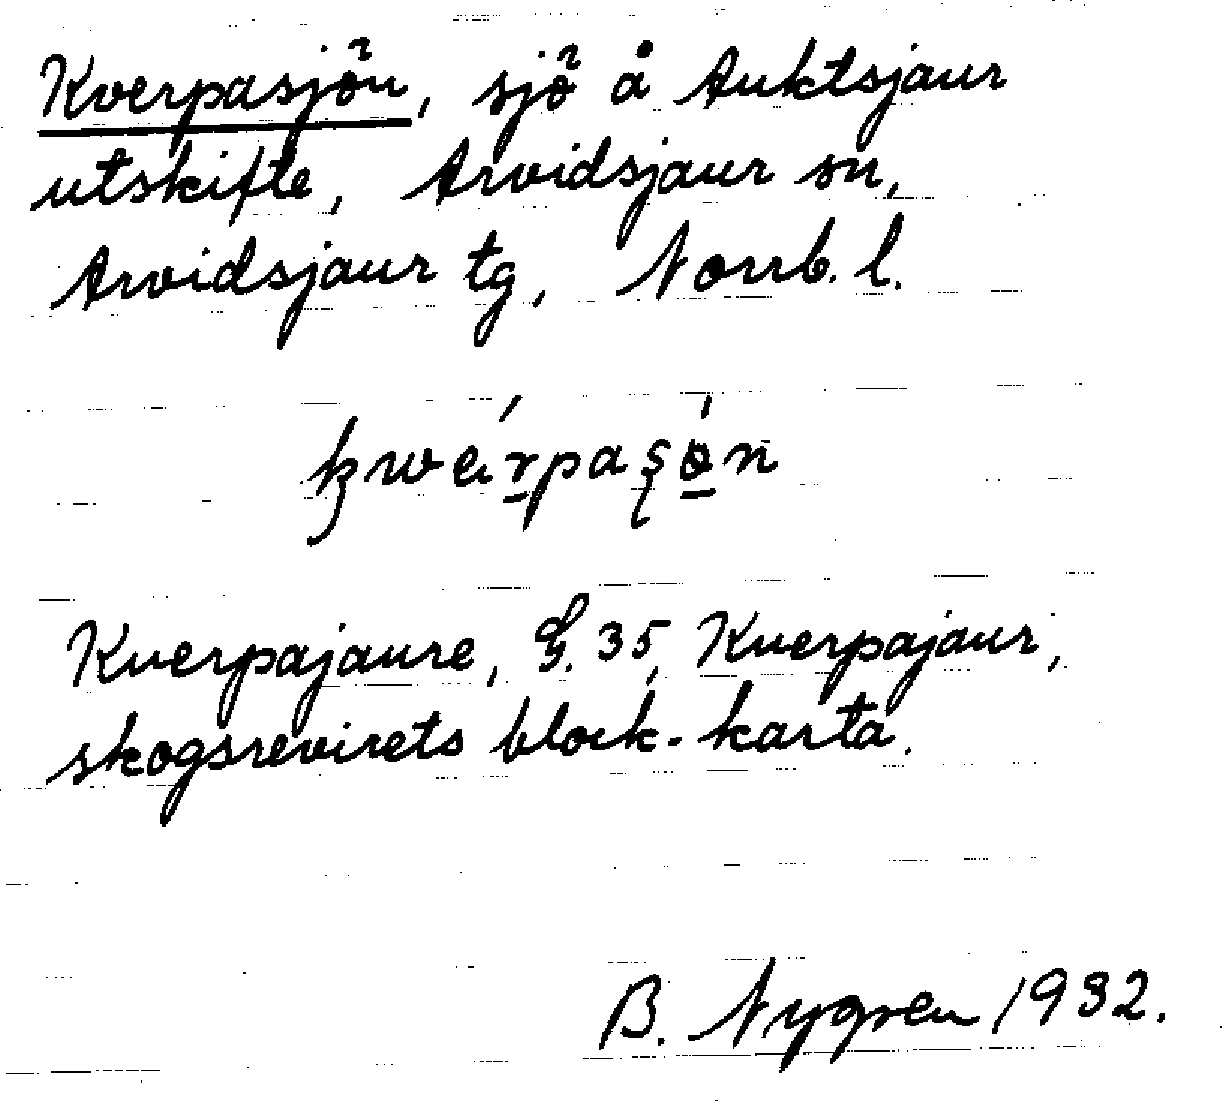 Kverpasjön, sjö å Auktsjaur
utskifte, Arvidsjaur sn,
Arvidsjaur tg, Norrb. l.
kwérpaʂö́n
Kverpajaure, G. 35, Kverpajaur,
skogsrevirets block-karta.
B. Nygren 1932.